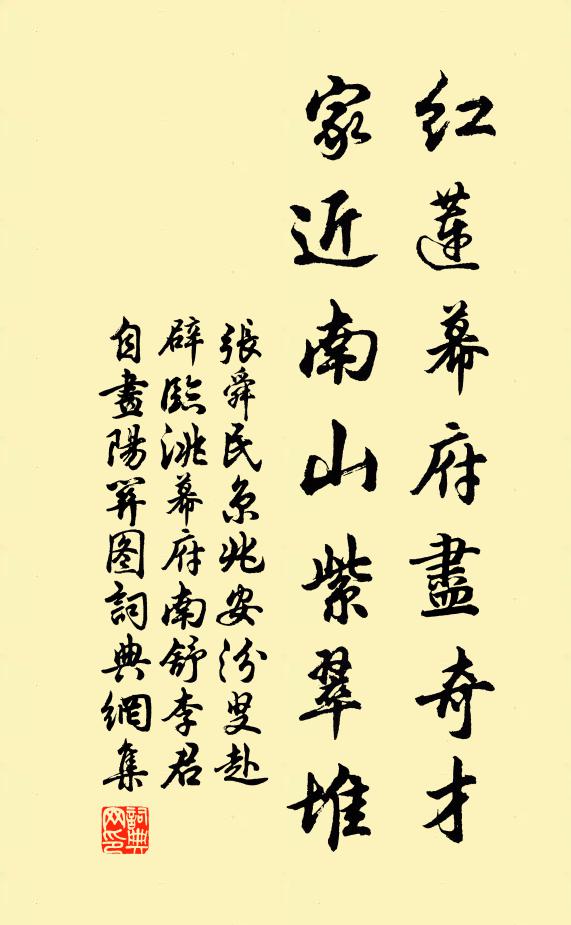 红蓮幕府盡奇才
家近南山紫翠堆
張舜民京兆安汾叟赴
辟臨洮幕府南舒李君
自畫陽關图詞典網集
詞典网印